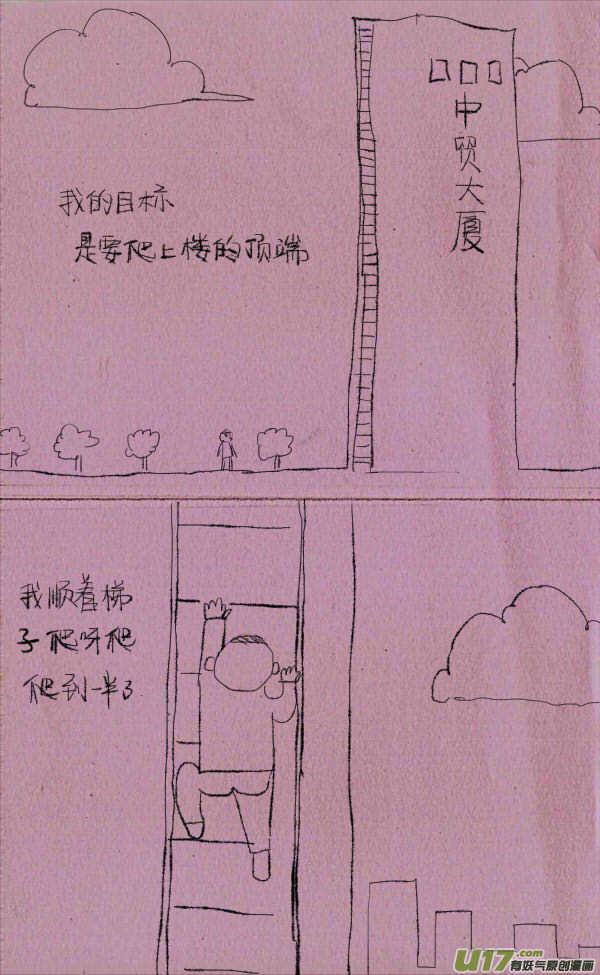 中贸大厦
我的目标
是要爬上楼的顶端
我顺着梯
子爬呀爬
爬到一半了
U17.com
有妖气原创漫画